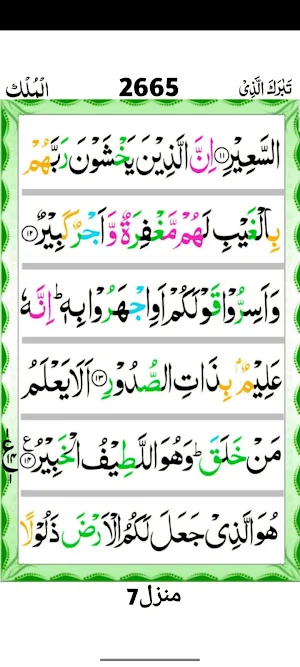 تَبٰرَكَ الَّذِىْ 2665 الْمُلْك
السَّعِيْرِ ﴿۱۱﴾ اِنَّ الَّذِيْنَ يَخْشَوْنَ رَبَّهُمْ
بِالْغَيْبِ لَهُمْ مَّغْفِرَةٌ وَّاَجْرٌ كَبِيْرٌ ﴿۱۲﴾
وَاَسِرُّوْا قَوْلَكُمْ اَوِاجْهَرُوْا بِهٖ ؕ اِنَّهٗ
عَلِيْمٌۢ بِذَاتِ الصُّدُوْرِ ﴿۱۳﴾ اَلَا يَعْلَمُ
مَنْ خَلَقَ ؕ وَهُوَ اللَّطِيْفُ الْخَبِيْرُ ﴿۱۴﴾
هُوَ الَّذِىْ جَعَلَ لَكُمُ الْاَرْضَ ذَلُوْلًا
منزل7